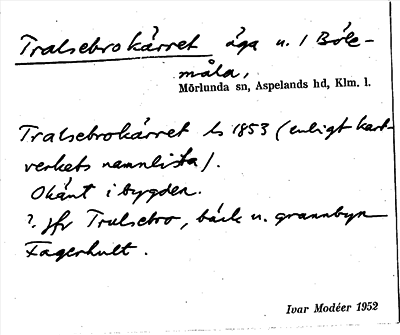 Tralsebrokärret äga u. 1 Böle-
måla,
Mörlunda sn, Aspelands hd, Klm. l.
Tralsebrokärret Ls 1853 (enligt kart-
verkets namnlista).
Okänt i bygden.
?. jfr Trulsebro, bäck u. grannbyn
Fagerhult.
Ivar Modéer 1952